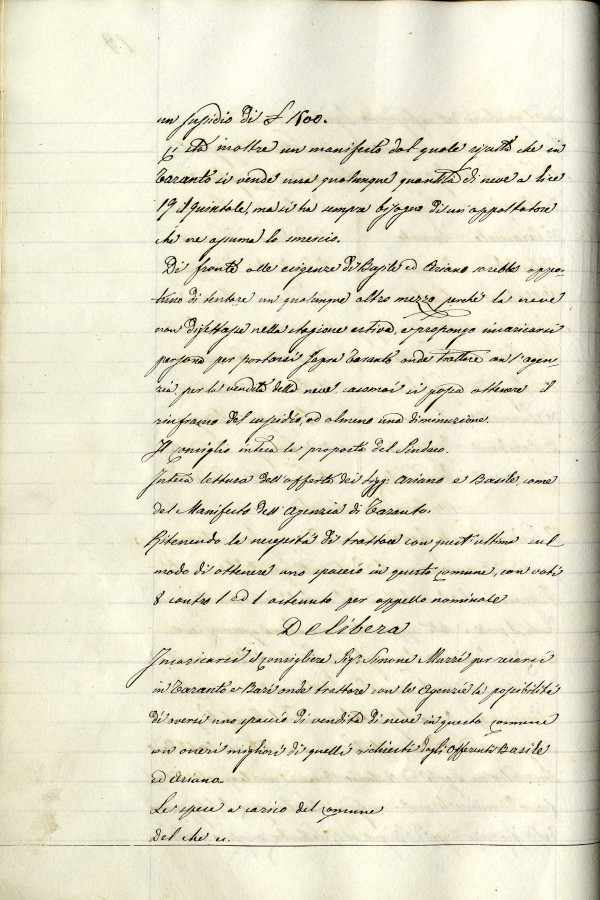 un sussidio di £ 1500.
Ci sta inoltre un manifesto dal quale risulta che in
Taranto si vende una qualunque quantità di neve a lire
19 il quintale, ma si ha sempre bisogno di un appaltatore
che ne assuma lo smercio.
Di fronte alle esigenze di Basile ed Ariano sarebbe oppor-
tuno di tentare un qualunque altro mezzo perchè la neve
non difettasse nella stagione estiva, e propongo incaricarsi
persona per portarsi sopra Taranto onde trattare con l'agen-
zia per la vendita della neve, casomai si possa ottenere il
rinfranco del sussidio, od almeno una diminuzione.
Il Consiglio intesa la proposta del Sindaco.
Intesa lettura dell'offerta dei Sigg: Ariano e Basile, come
del Manifesto dell'Agenzia di Taranto.
Ritenendo la necessità di trattare con quest'ultima sul
modo di ottenere uno spaccio in questo comune, con voti
8 contro 1 ed 1 astenuto per appello nominale
Delibera
Incaricarsi il Consigliere Sigr Simone Murri per recarsi
in Taranto e Bari onde trattare con le Agenzie la possibilità
di aversi uno spaccio di vendita di neve in questo comune
con oneri migliori di quelli richiesti dagli offerenti Basile
ed Ariano.
Le spese a carico del comune
Del che ec.